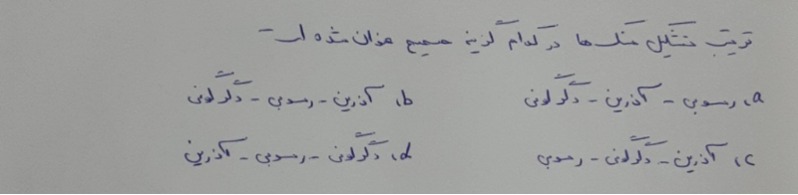 ترتیب تشکیل سنگ ها در کدام گزینه صحیح عنوان شده است
a، رسوبی - آذرین - دگرگونی b، آذرین - رسوبی - دگرگونی
c، آذرین - دگرگونی - رسوبی d، دگرگونی - رسوبی - آذرین